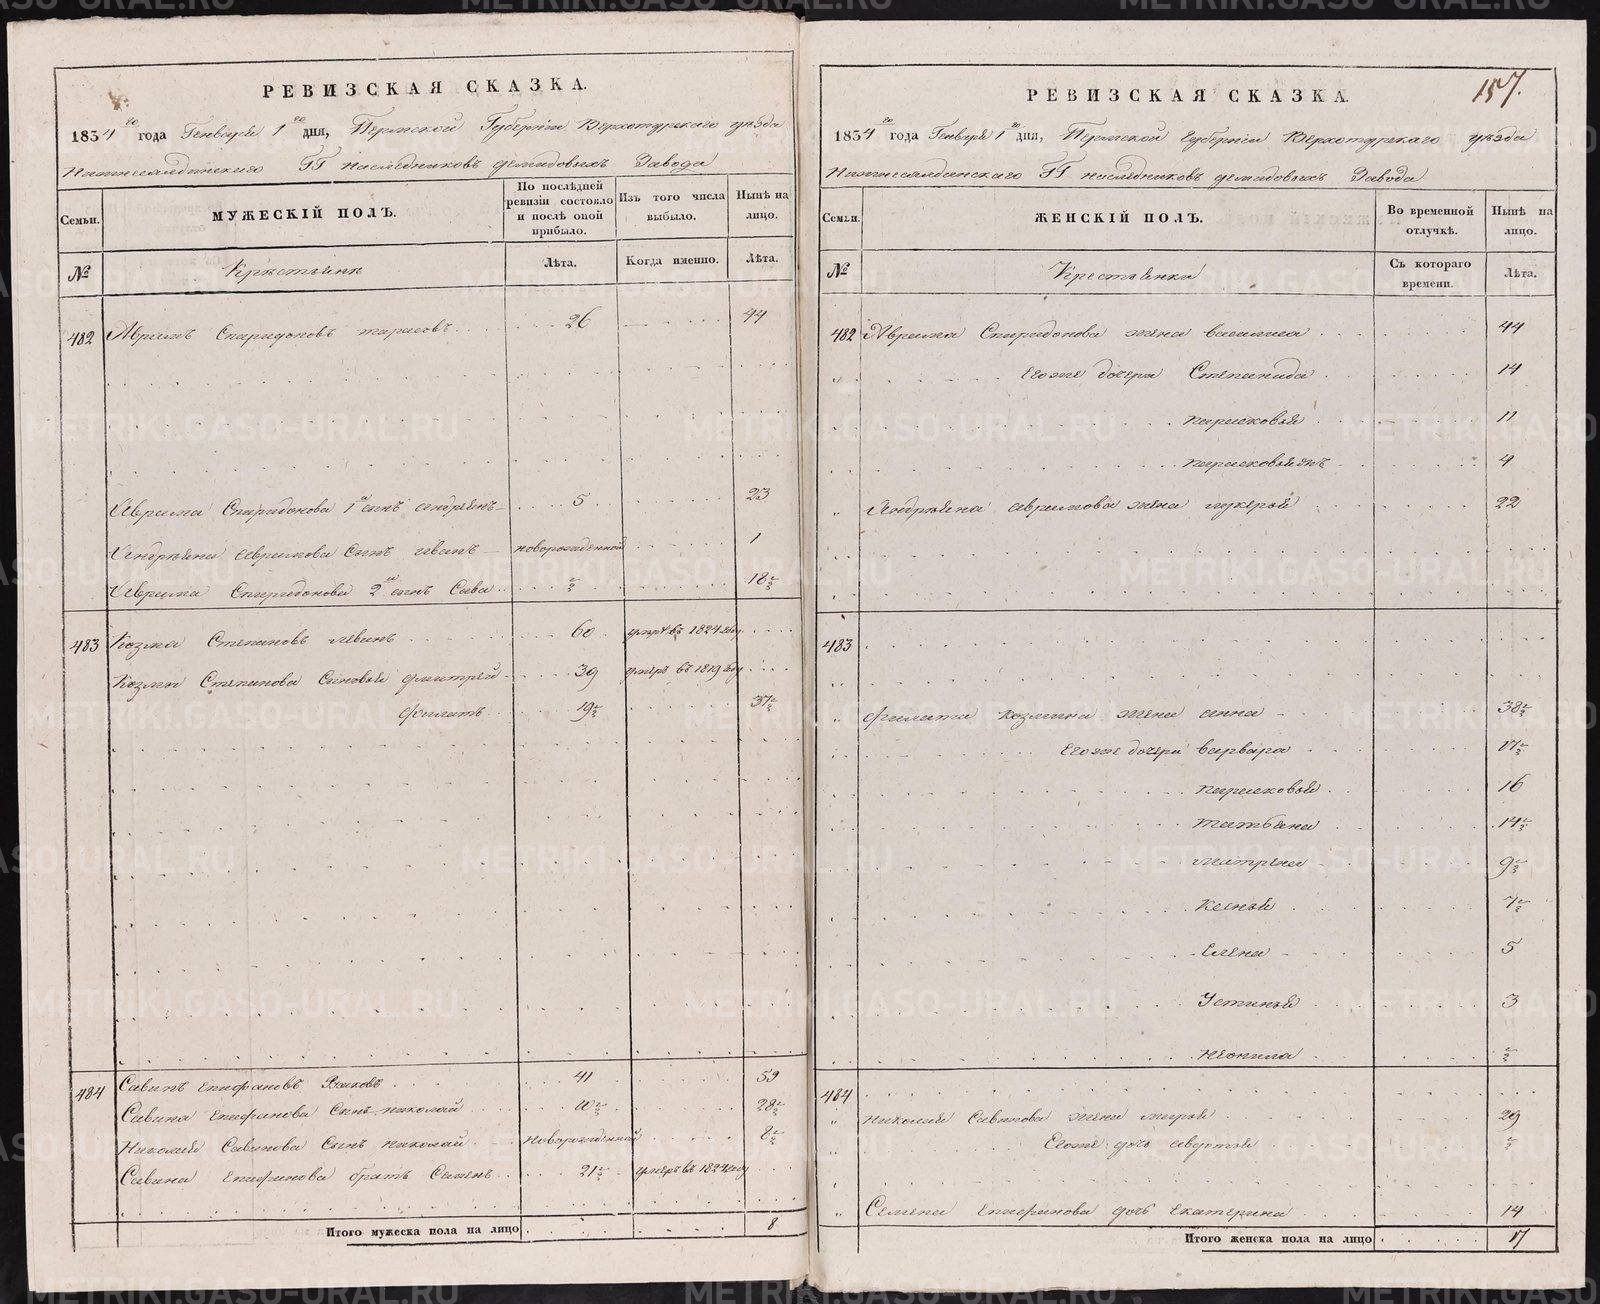 РЕВИЗСКАЯ СКАЗКА.
1834 го года Генваря 1 го дня, Пермской Губернiи Верхотурскаго уѣзда
Нижнесалдинскаго ГГ наслѣдниковъ демидовыхъ Завода
Семьи. МУЖЕСКIЙ ПОЛЪ. По послѣдней ревизiи состояло и послѣ оной прибыло. Изъ того числа выбыло. Нынѣ на лицо.
№ Крестьянъ Лѣта. Когда именно. Лѣта.
482 Аврамъ Спиридоновъ тарасовъ 26 44
Аврама Спиридонова 1й сынъ андреянъ 5 23
Андреяна аврамова сынъ иванъ новорожденной 1
Аврама Спиридонова 2й сынъ Сава ½ 18½
483 Козма Степановъ левинъ 60 умеръ въ 1824 году
Козмы Степанова Сыновья дмитрей 39 умеръ въ 1819 году
филатъ 19½ 37½
484 Савинъ епифановъ Волковъ 41 59
Савина епифанова Сынъ николай 10½ 28½
Николая Савинова Сынъ николай новорожденной 8½
Савина епифанова братъ Семенъ 21½ умеръ въ 1824 году
Итого мужеска пола на лицо 8
157.
РЕВИЗСКАЯ СКАЗКА.
1834 го года Генваря 1 го дня, Пермской Губернiи Верхотурскаго уѣзда
Нижнесалдинскаго ГГ наслѣдниковъ демидовыхъ Завода
Семьи. ЖЕНСКIЙ ПОЛЪ. Во временной отлучкѣ. Нынѣ на лицо.
№ Крестьянка Съ котораго времени. Лѣта.
482 Аврама Спиридонова жена василиса 44
Его же дочери Степанида 14
парасковья 11
парасковья же 4
Андреяна аврамова жена лукерья 22
483
филата козмина жена анна 38½
Его же дочери варвара 17½
парасковья 16
татьяна 14½
матрена 9½
Ксенья 7½
Елена 5
Устинья 3
неонила ½
484
николая Савинова жена марья 29
Его же дочь авдотья ½
Семена епифанова дочь екатерина 14
Итого женска пола на лицо 17
METRIKI.GASO-URAL.RU